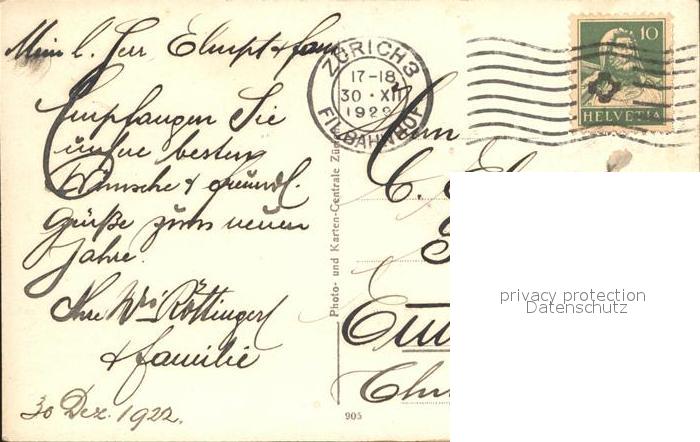 Mein l. Herr
& fam
Empfangen Sie
unsre besten
Wünsche & freundl.
Grüße zum neuen
Jahre.
Ihr Röttinger
& familie
30 Dez. 1922.
ZÜRICH 3
17-18
30 · XII
1922
FIL. BAHNHOF
10
HELVETIA
Photo- und Karten-Centrale Zür
905
Herrn
C.
privacy protection
Datenschutz